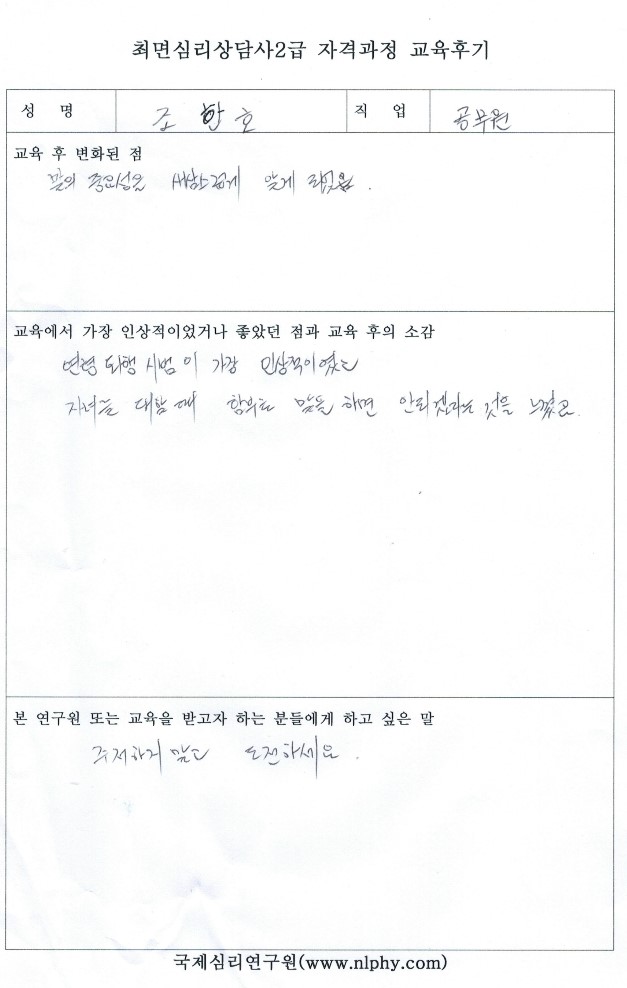 최면심리상담사2급 자격과정 교육후기
성 명 조 한 호 직 업 공무원
교육 후 변화된 점
말의 중요성을 새삼스럽게 알게 되었음.
교육에서 가장 인상적이었거나 좋았던 점과 교육 후의 소감
연령 퇴행 시범이 가장 인상적이였고
자녀를 대할 때 함부로 말을 하면 안되겠다는 것을 느꼈고.
본 연구원 또는 교육을 받고자 하는 분들에게 하고 싶은 말
주저하지 말고 도전하세요.
국제심리연구원(www.nlphy.com)